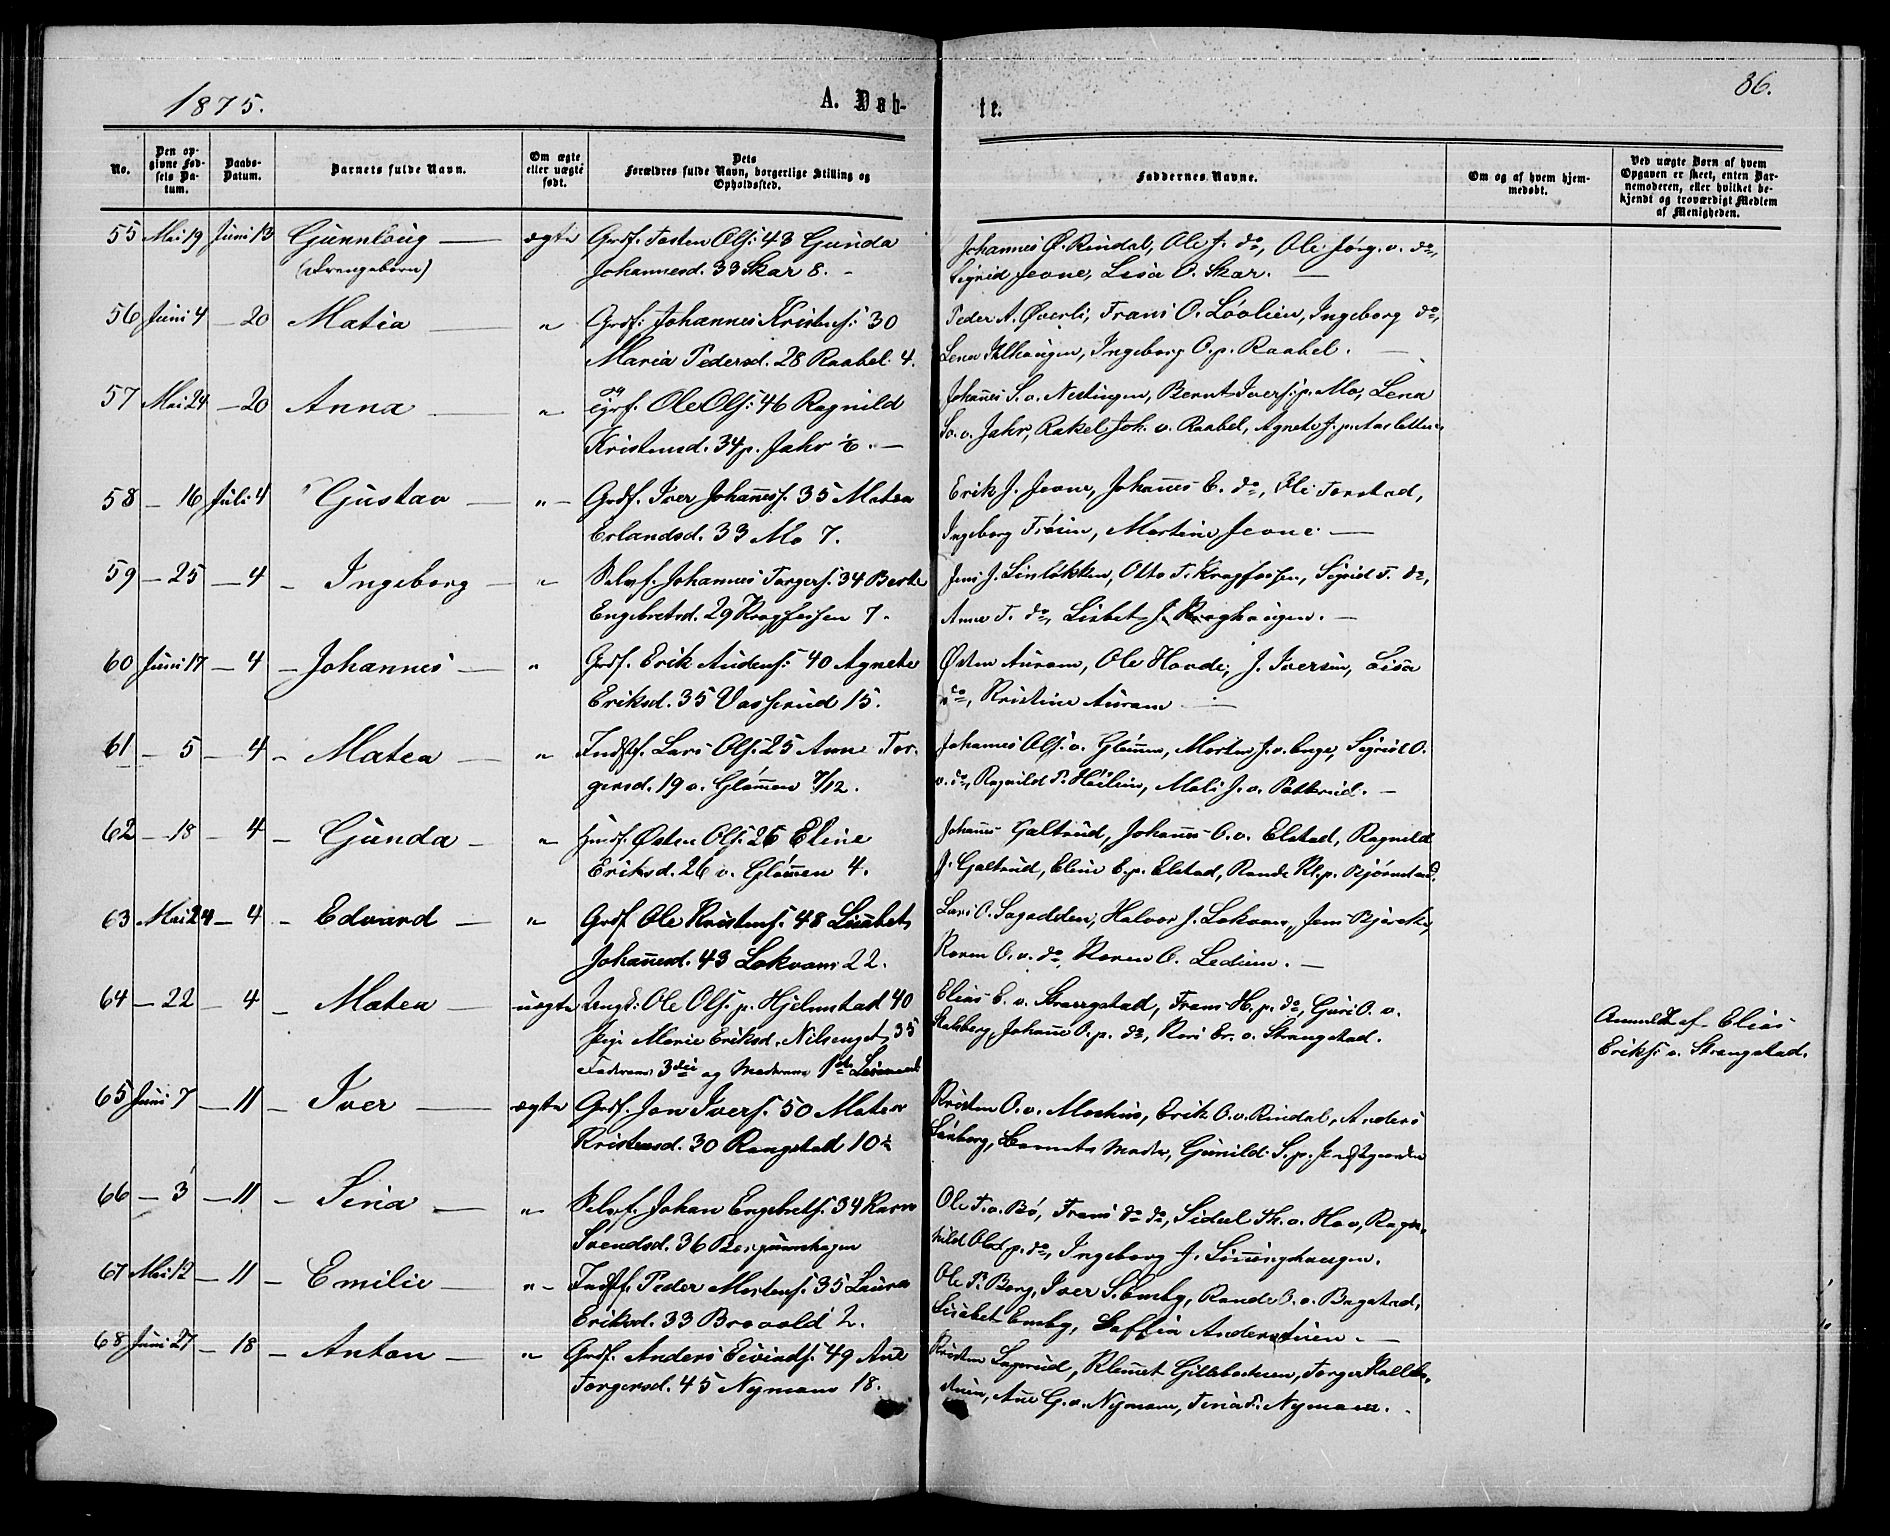 1875.
A. Døb-
te.
86.
No.
Den op-
givne Fød-
sels Da-
tum.
Daabs-
Datum.
Barnets fulde Navn.
Om ægte
eller uægte
født.
Dets
Forældres fulde Navn, borgerlige Stilling og
Opholdssted.
Faddernes Navne.
Om og af hvem hjem-
medøbt.
Ved uægte Børn af hvem
Opgaven er skeet, enten Bar-
nemoderen, eller hvilket be-
kjendt og troværdigt Medlem
af Menigheden.
55 Mai 19 Juni 13 Gunnloug ægte Grdf. Tosten Ols: 43 Gunda
Johannesd. 33 Skar 8.
Johannes Rindal, Ole J. do, Ole Jørg. v. do,
Sigrid Jevne, Lisa O. Skar.
56 Juni 4 20 Matia " Grdf: Johannes Kristens: 30
Maria Pedersd. 28 Raabøl 4.
Peder A. Øverli, Frans O. Løvlien, Ingeborg do,
Lena Ihlhaugen, Ingeborg O. p. Raabøl.
57 Mai 24 20 Anna " Ole Ols: 46 Ragnild
Kristensd. 34 p. Jahr
Johañes S. v. Nestingen, Bernt Ivers: p. Mo, Lena
v. Jahr, Rakel Joh. v. Raabøl, Agnete J. p.
58 16 Juli 4 Gustav " Grdf. Iver Johañess. 35 Matea
Erlandsd. 33 Mo 7.
Erik J. Jevne, Johañes E. do, Eli Torstad,
Ingeborg Trøen, Martine Jevne.
59 25 4 Ingeborg " Selvf. Johannes Torgers. 34 Berte
Engebretsd. 29 Kragfossen 7.
Jens J. Linløkken, Otto T. Kragfossen, Sigrid T. do,
Anne T. do, Lisbet J. Kraghaugen.
60 Juni 17 4 Johannes " Grdf. Erik Audens: 40 Agnete
Eriksd. 35 Vasserud 15.
Østen Auram, Ole Hovde, J. Iversen, Lisa
do, Kristine Auram
61 5 4 Matea " Indstf. Lars Ols: 25 Anne Tor-
gersd. 19 v. Glømen 7/12.
Johannes Ols: v. Glømen, Morten J. v. Enge, Sigrid O.
v. do, Ragnild P. Mali J. v.
62 18 4 Gunda " Husf. Østen Ols. 26 Eline
Eriksd. 26 v. Glømen 4.
Johañes Galtrud, Johañes O. v. Elstad, Ragnild
J. Galtrud, Eline E. p. Elstad, Rande Kl. p. Bjørnstad.
63 Mai 24 4 Edvard " Grdf Ole Kristens: 48 Lisabet
Johañesd. 43 Lokvam 22.
Lars O. Halvor J. Lokvam, Jens
Karen O. v. do, Karen O.
64 22 4 Matea uægte Ungk: Ole Ols. p. Hjelmstad 40
Pige Marie Eriksd. 35
Faderens 3die og Moderens 1ste Leiermaal
Elias E. v. Strangstad, Frans H. p. do, Guri O. v.
Johañe O. p. do, Kari Er. v. Strangstad.
Anmeldt af Elias
Eriks: v. Strangstad.
65 Juni 7 11 Iver ægte Grdf. Jon Ivers. 50 Matea
Kristensd. 30 Rangstad 10
Kristen O. v. Moshus, Erik O. v. Rindal, Anders
Barnets Moder, Gunild S. p.
66 3 11 Siria " Selvf. Johan Engebrets. 34 Karn
Svendsd. 36
Ole T. v. Bø, Frans do do, Sidsel Th. v. Hov, Ragn-
hild p. do, Ingeborg J.
67 Mai 12 11 Emilie " Indstf. Peder Mortens. 35 Laura
Eriksd. 33 Brovold 2.
Ole P. Berg, Iver S. Emby, Rande O. v. Bagstad,
Lisabet Emby,
68 Juni 27 18 Anton " Grdf. Anders Eivinds. 49 Añe
Torgersd. 45 Nymoen 18.
Kristen Klemet Torger
Añe G. v. Nymoen, Nymoen.